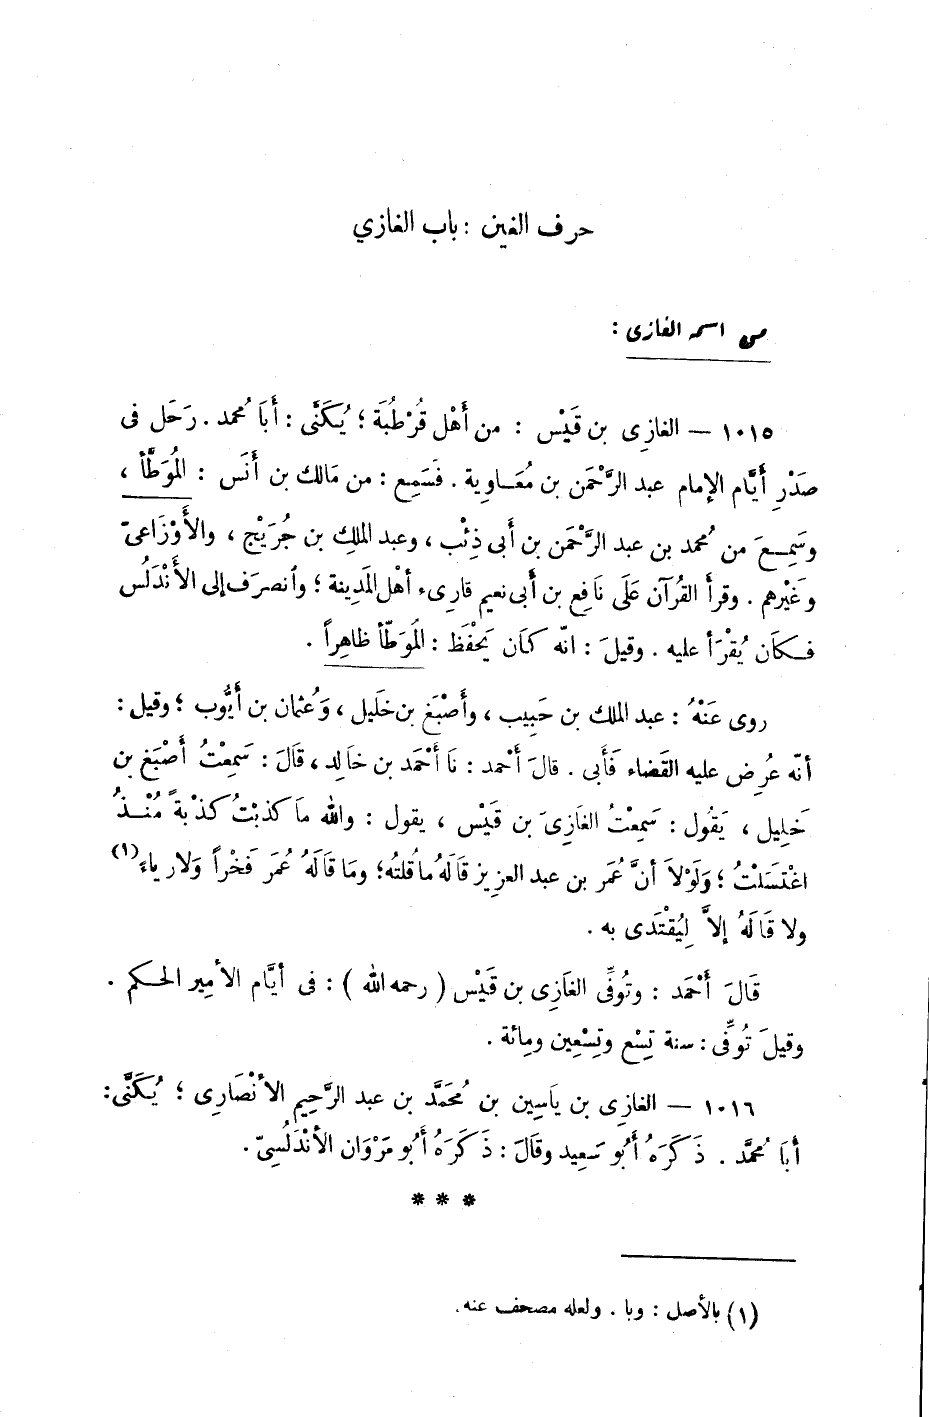 حرف الغين : باب الغازي
من اسمه الغازى :
١٠١٥ — الغازِى بن قَيْس : من أَهْل قُرْطُبَة ؛ يُكَنَّى : أَبَا مُحمد . رَحَل فى
صَدْرِ أَيَّام الإمام عبد الرَّحْمَن بن مُعَـاوية . فَسَمِع : من مَالك بن أَنَس : المُوَطَّأ ،
وسَمِـعَ من مُحمد بن عبد الرَّحْمَن بن أَبى ذِئْب ، وعبد الملك بن جُرَيْج ، والأَوْزَاعىّ
وغَيْرهم . وقرأَ القُرآن عَلَى نَافِع بن أَبى نعيم قارِىء أهْل المَدِينة ؛ وٱنصرَف إلى الأَنْدَلُس
فـكَان يُقْرَأ عليه . وقيلَ : انّه كَان يَحْفَظ : المُوَطّأ ظاهِراً .
روى عَنْهُ : عبد الملك بن حَبِيب ، وأَصْبَغ بن خَليل ، وَعُثمان بن أَيُّوب ؛ وقيل :
أنّه عُرِض عليه القَضاء فَأَبى . قالَ أَحْمد : نَا أَحْمَد بن خَالِد ، قَالَ : سَمِعْتُ أَصْبَغ بن
خَلِيل ، يَقُول : سَمِعْتُ الغَازِىَ بن قَيْس ، يقول : والله مَا كَذبْتُ كذْبَةً مُنْـذُ
اغْتَسَلْتُ ؛ وَلَوْلاَ أنَّ عُمَر بن عبد العزيز قَالَهُ ماقُلتهُ؛ ومَا قَالَهُ عُمَر فَخْراً وَلاَرياءَ (١)
ولا قَالَهُ إلاَّ لِيُقْتَدَى به .
قَالَ أَحْمَد : وتُوفِّى الغَازِى بن قَيْس ( رحمه الله ) : فى أيَّام الأمِير الحـكم .
وقيلَ تُوفِّى : سنة تِسْع وتِسْعِين ومِائة .
١٠١٦ — الغازِى بن يَاسِين بن مُحَمَّد بن عبد الرَّحِيم الأنْصَارِى ؛ يُكَنَّى :
أَبَا مُحمَّد . ذَكَرَهُ أَبُو سَعِيد وقَالَ : ذَكَرَهُ أَبُو مَرْوَان الأنْدَلُسِىّ .
* * *
(١) بالأصل : وبا . ولعله مصحف عنه .